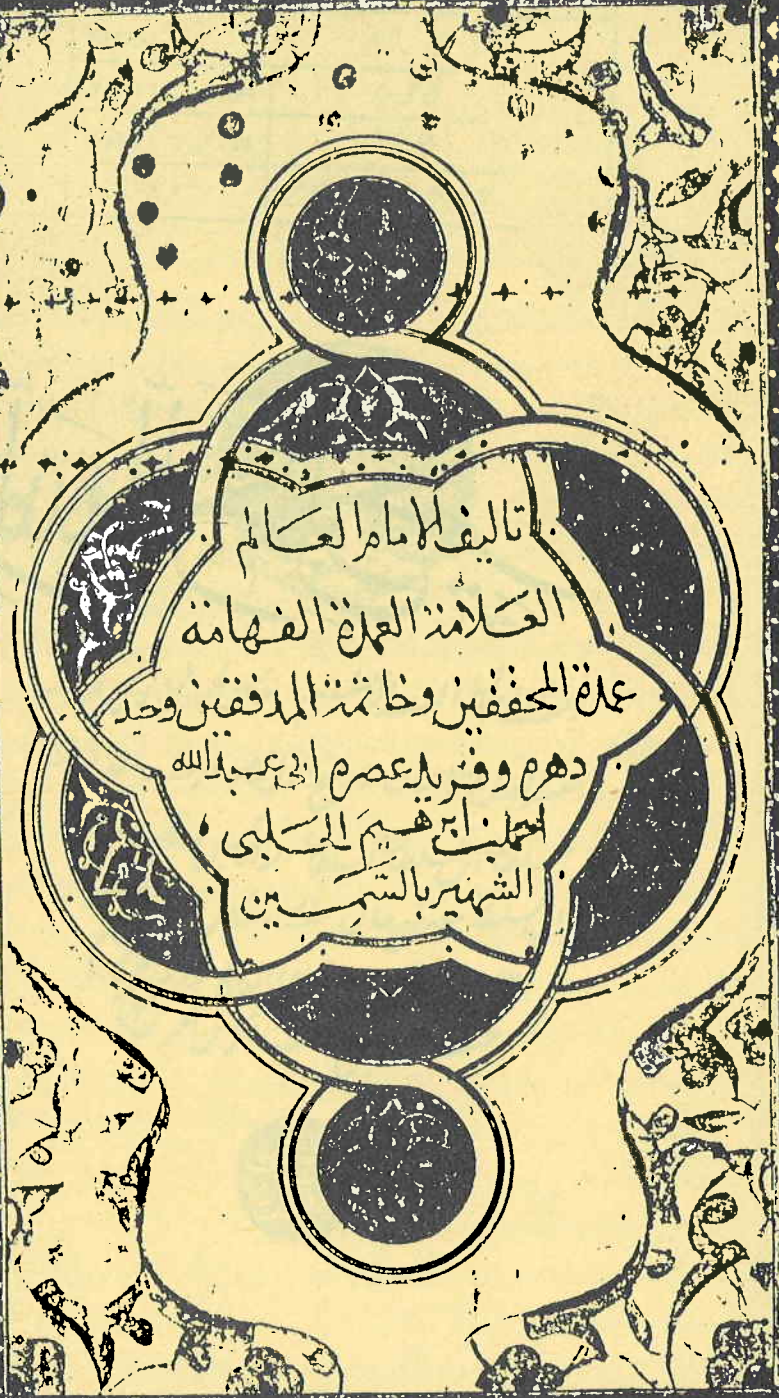 تاليف الامام العالم
العلامة العمدة الفهامة
عمدة المحققين وخاتمة المدققين وحيد
دهره وفريد عصره ابي عبدالله
احمد بن ابرهيم الحلبي
الشهير بالسمين